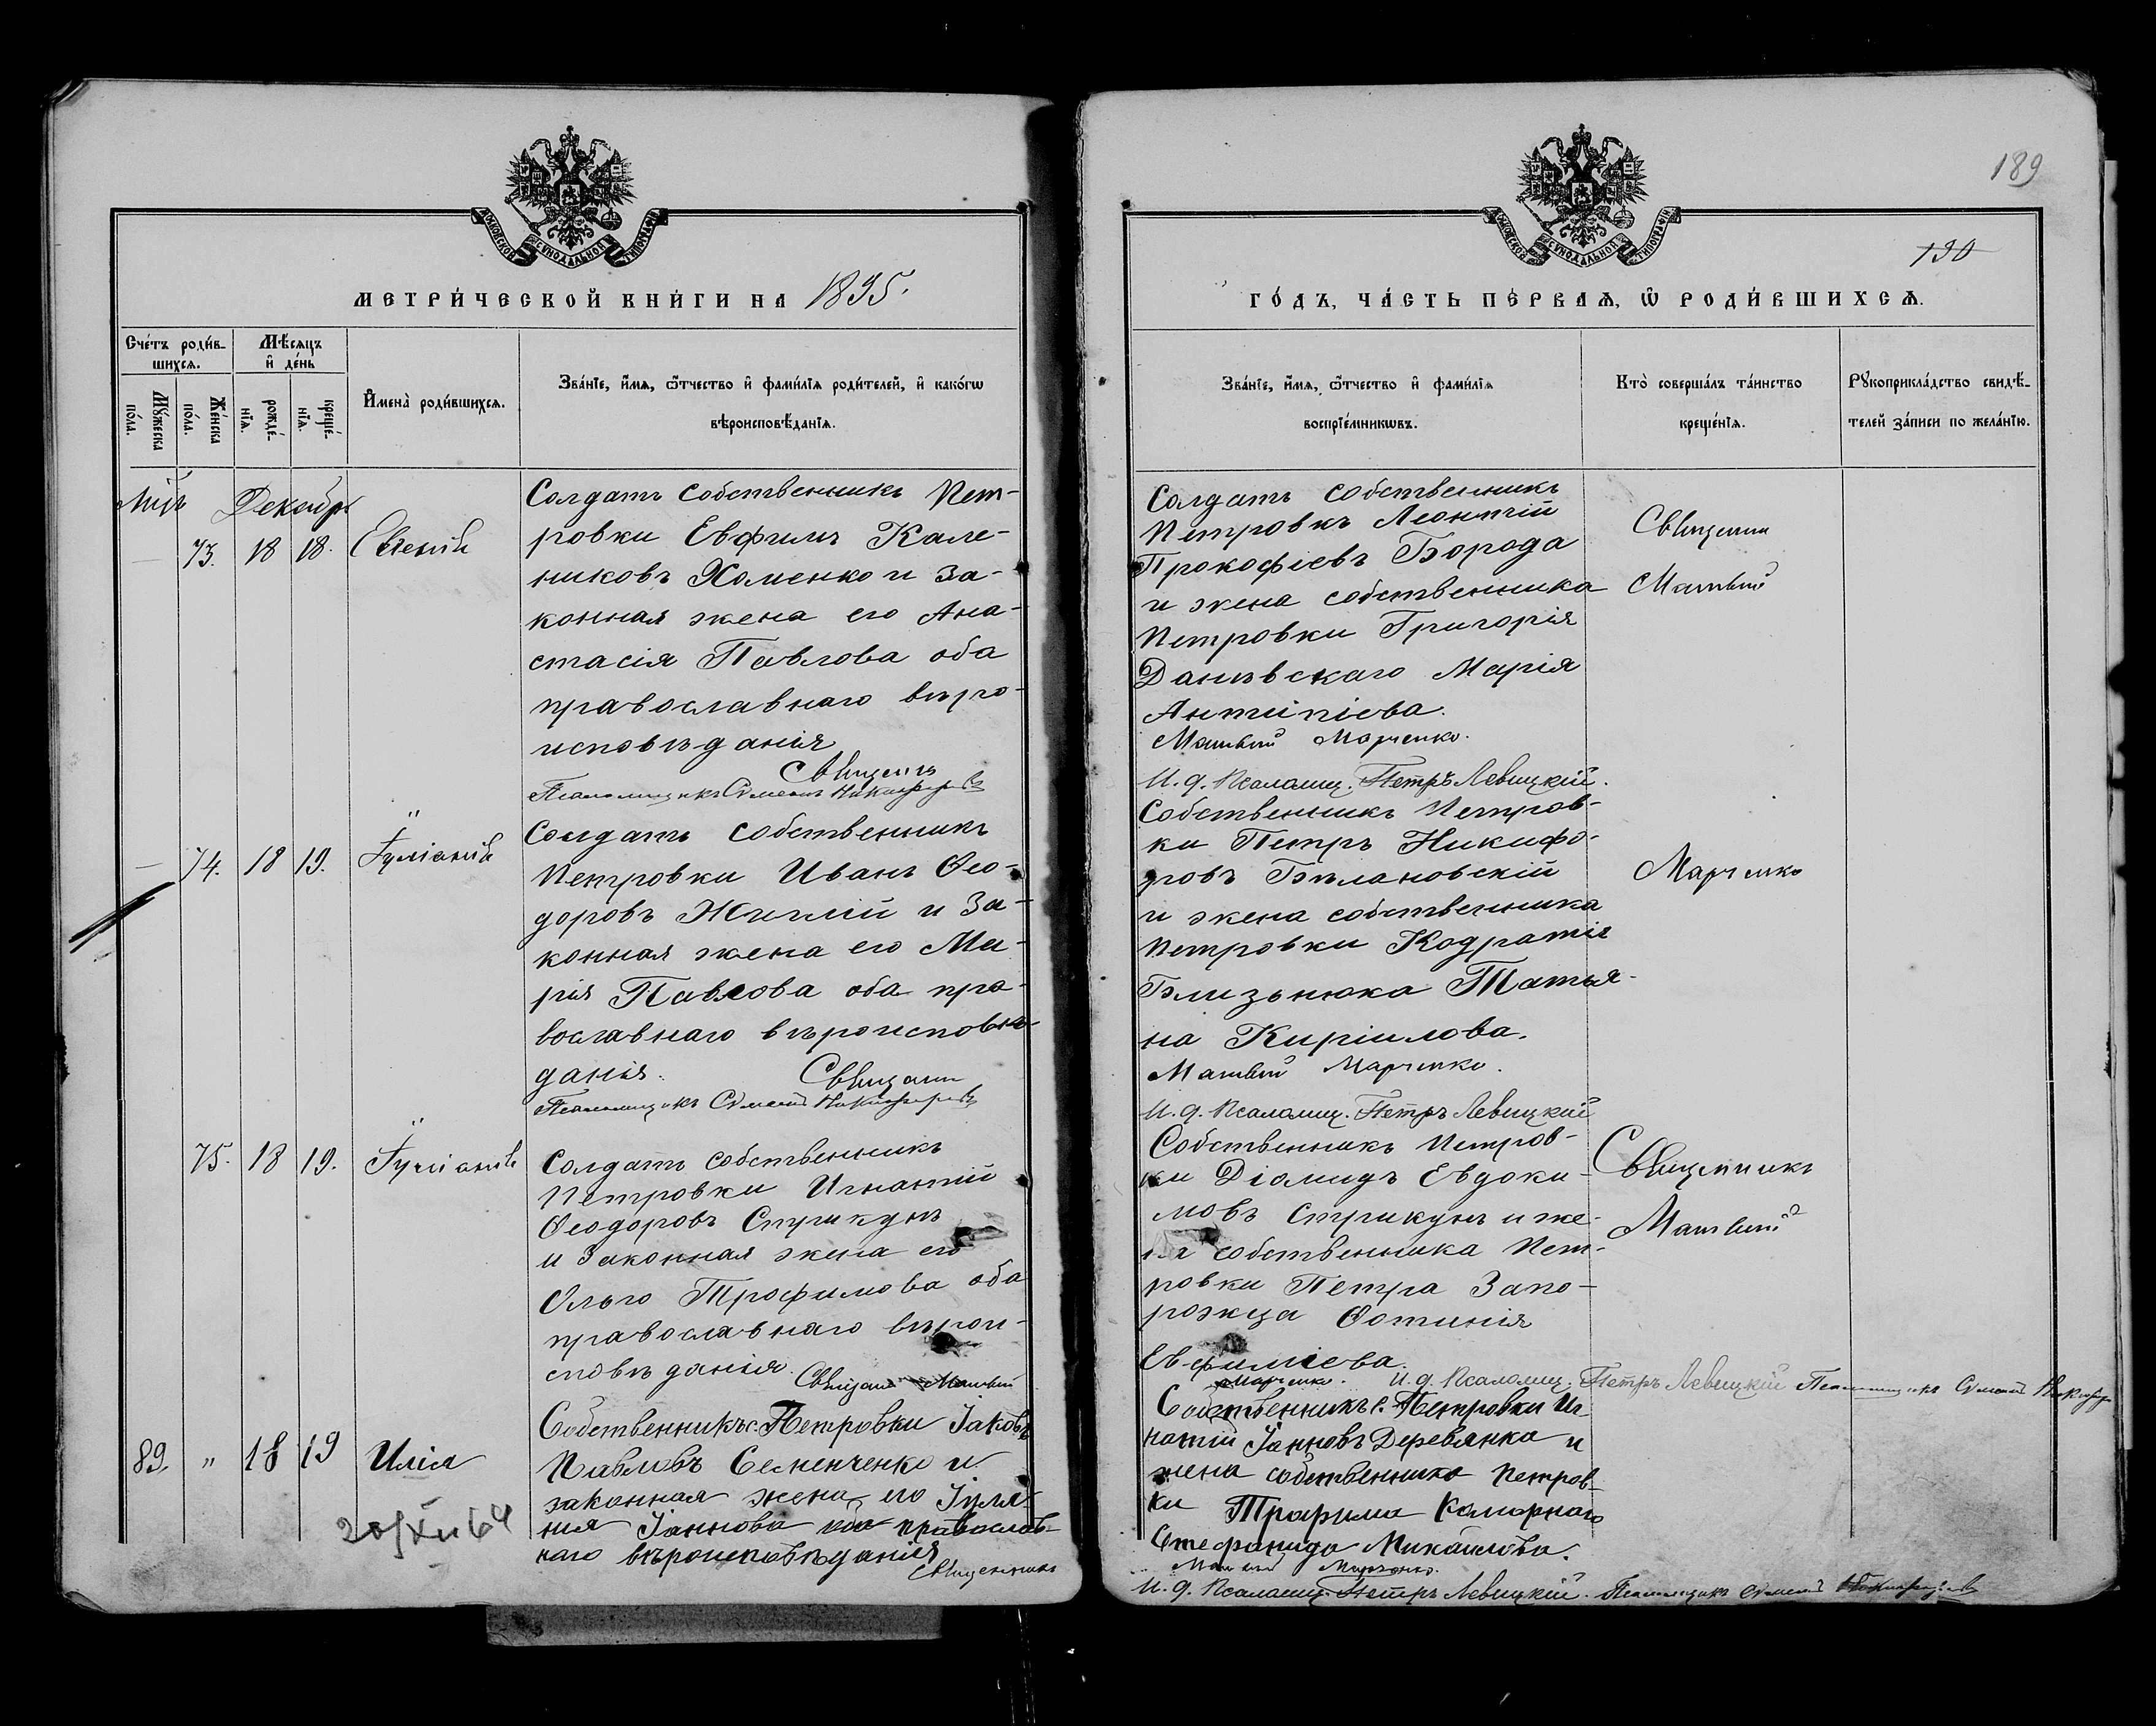 189
130
МОСКОВСКОЙ СѴНОДАЛЬНОЙ ТИПОГРАФІИ
МОСКОВСКОЙ СѴНОДАЛЬНОЙ ТИПОГРАФІИ
МЕТРИ́ЧЕСКОЙ КНИ́ГИ НА 1895.
ГО́ДЪ, ЧА́СТЬ ПЕ́РВАѦ, Ѽ РОДИ́ВШИХСѦ.
Сче́тъ роди́в-
шихсѧ.
Мѣ́сѧцъ
и҆ де́нь
Мꙋ́жеска
по́ла.
Же́нска
по́ла.
рожде́-
нїѧ.
креще́-
нїѧ.
И҆мена̀ роди́вшихсѧ.
Зва́нїе, и҆́мѧ, ѻ҆́тчество и҆ фами́лїѧ роди́телей, и҆ како́гѡ
вѣроисповѣ́данїѧ.
Зва́нїе, и҆́мѧ, ѻ҆́тчество и҆ фами́лїѧ
воспрїе́мникѡвъ.
Кто̀ соверша́лъ та́инство
креще́нїѧ.
Рꙋкоприкла́дство свидѣ́-
телей за́писи по жела́нїю.
Мцъ Декабрь
73. 18 18. Евгенія
Солдатъ собственникъ Пет-
ровки Евфимъ Кале-
никовъ Хоменко и за-
конная жена его Ана-
стасія Павлова оба
православнаго вѣро-
исповѣданія
Священникъ
Псаломщикъ Симеонъ Никифоровъ
Солдатъ собственникъ
Петровкъ Леонтій
Прокофіевъ Борода
и жена собственника
Петровки Григорія
Данѣвскаго Марія
Антипіева.
Матвій Марченко.
И. д. Псаломщ. Петръ Левицкій.
Священникъ
Матвій
74. 18 19. Іуліанія
Солдатъ собственникъ
Петровки Иванъ Ѳео-
доровъ Жилій и за-
конная жена его Ма-
рія Павлова оба пра-
вославнаго вѣроисповѣ-
данія.
Священникъ
Псаломщикъ Симеонъ Никифоровъ
Собственникъ Петров-
ки Петръ Никифо-
ровъ Бѣлановскій
и жена собственника
Петровки Кодратія
Близьнюка Татья-
на Киріилова.
Матвій Марченко.
И. д. Псаломщ. Петръ Левицкій
Марченко
75. 18 19. Іуліанія
Солдатъ собственникъ
Петровки Игнатій
Ѳеодоровъ Стрикунъ
и законная жена его
Ольго Трофимова оба
православнаго вѣрои-
сповѣданія.
Священникъ Матвій
Собственникъ Петров-
ки Діомидъ Евдоки-
мовъ Стрикунъ и же-
на собственника Пет-
ровки Петра Запо-
рожца Ѳотинія
Евфиміева.
Марченко. И. д. Псаломщ. Петръ Левицкій Псаломщикъ Симеонъ Никифор
Священникъ
Матвій
89. " 18 19 Илія
Собственникъ с. Петровки Іаковъ
Павловъ Семенченко и
законная жена его Іулiа-
нія Іаннова оба православ-
наго вѣроисповѣданія
Священникъ
Собственникъ с. Петровки Иг-
натій Іанновъ Деревянко и
жена собственника Петров-
ки Трофима Комарнаго
Стефанида Михаилова.
Матвій Марченко.
И. д. Псаломщ. Петръ Левицкій. Псаломщикъ Симеонъ Никифоровъ
20/XII 64